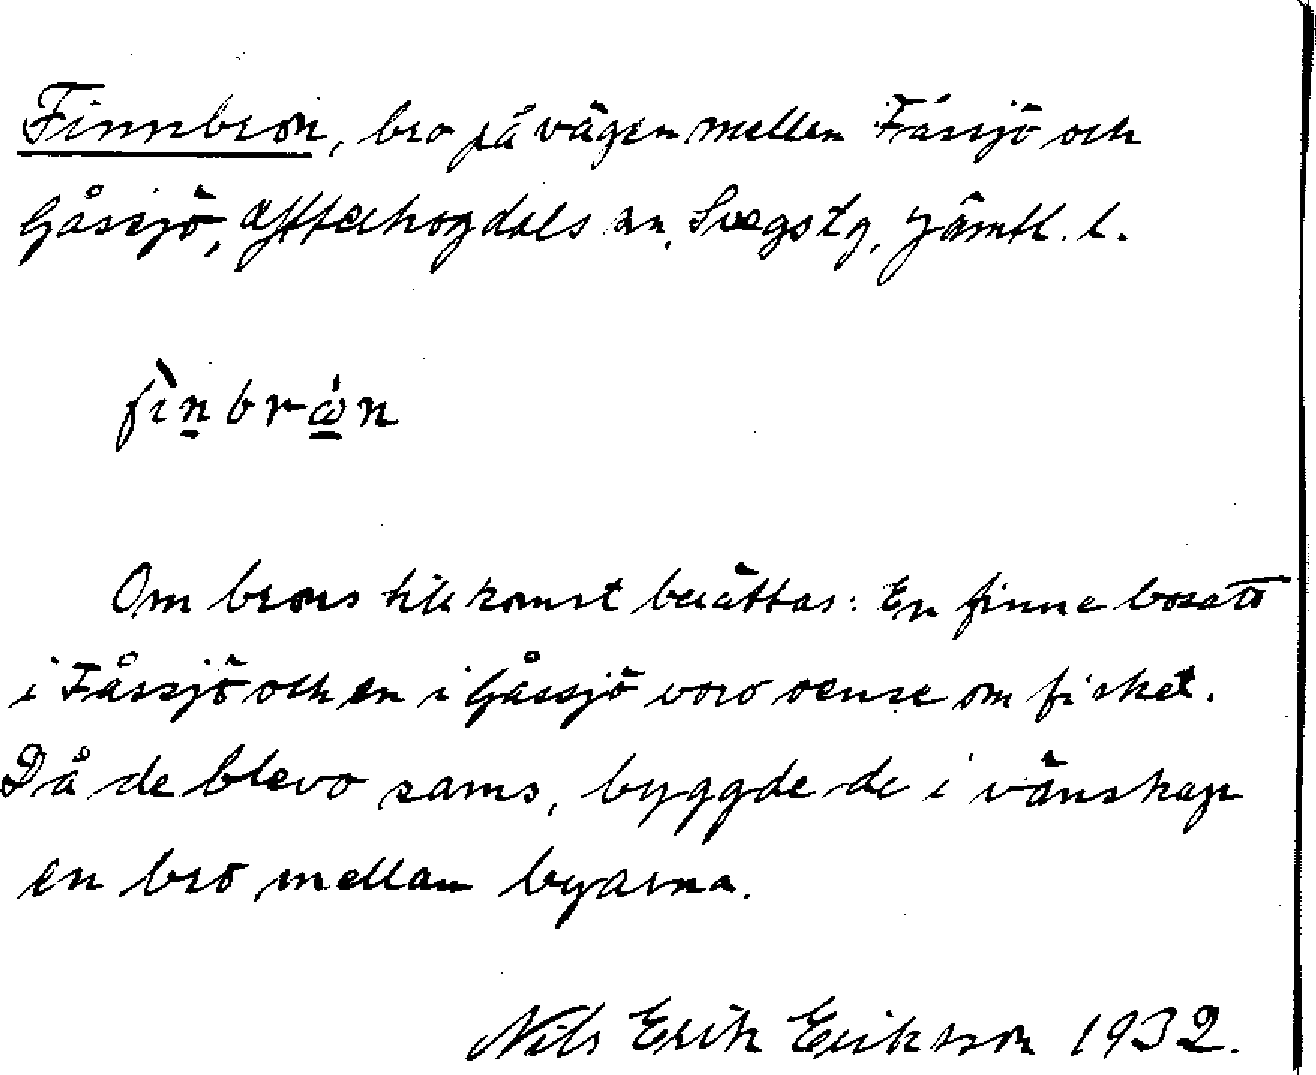 Finnbron, bro på vägen mellan Fåssjö och
Gåssjö, Ytterhogdals sn, Svegs tg, Jämtl. l.
fìn̲brώ̲n
Om brons tillkomst berättas: En finne bosatt
i Fåssjö och en i Gåssjö voro oense om fisket.
Då de blevo sams, byggde de i vänskap
en bro mellan byarna.
Nils Erik Eriksson 1932.